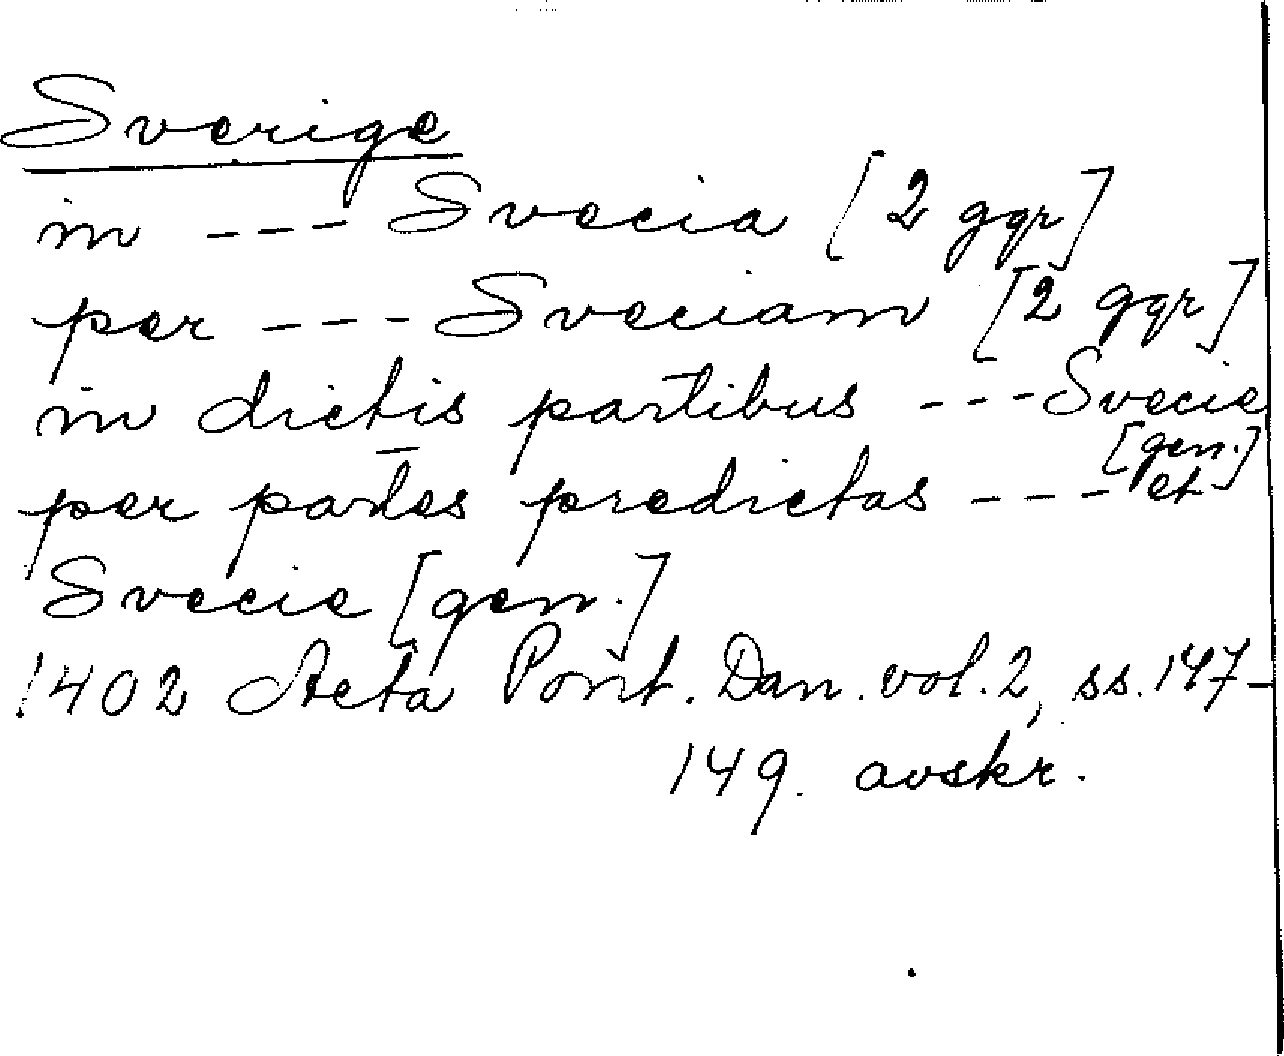 Sverige
in --- Svecia [2 ggr]
per --- Sveciam [2 ggr]
in dictis partibus --- Svecie
[gen.]
per partes predictas --- et
Svecie [gen.]
1402 Acta Pont. Dan. vol. 2, ss. 147-
149. avskr.